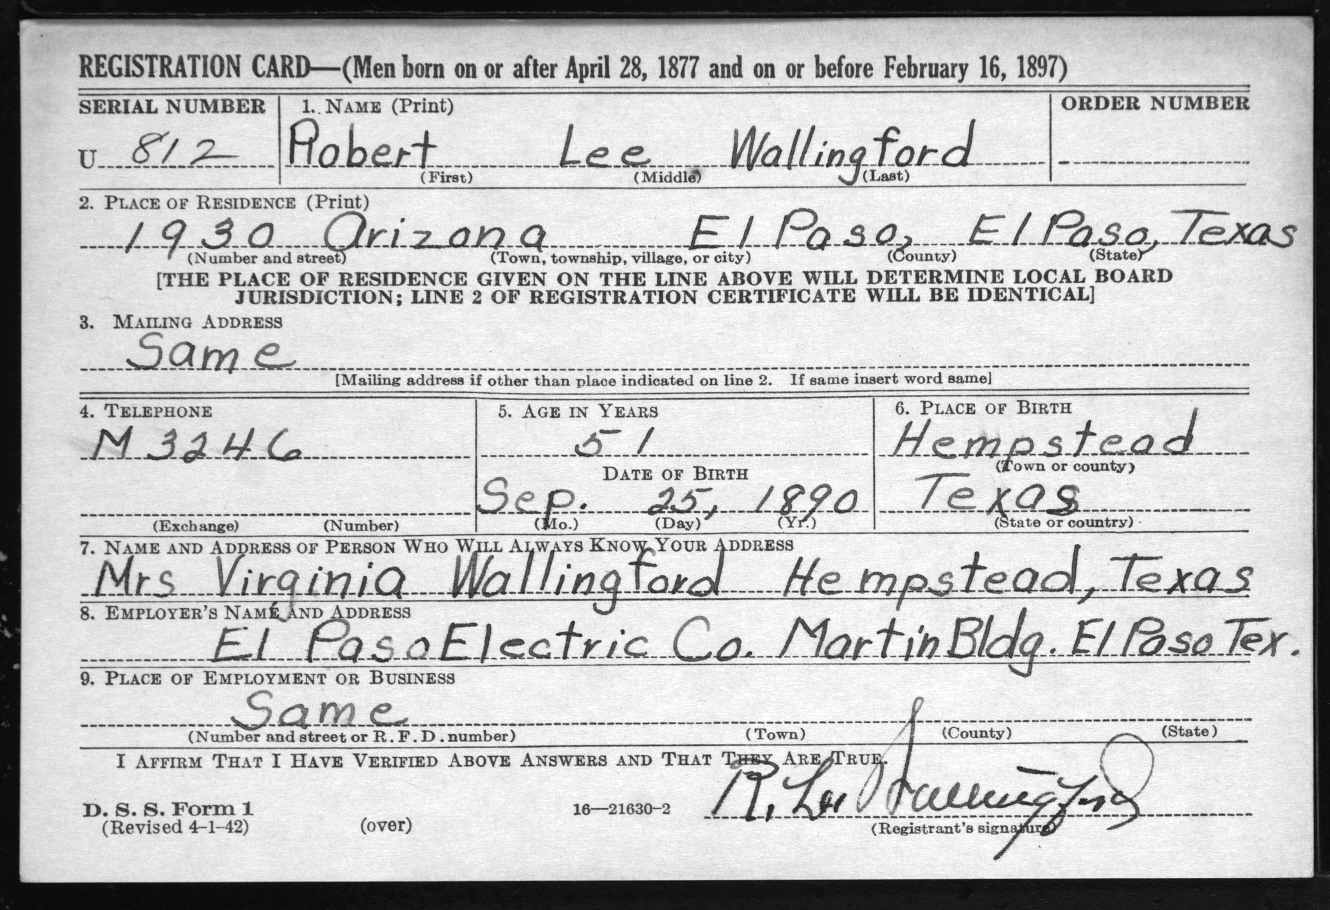 REGISTRATION CARD—(Men born on or after April 28, 1877 and on or before February 16, 1897)
SERIAL NUMBER 1. NAME (Print) ORDER NUMBER
U 812 Robert Lee Wallingford
(First) (Middle) (Last)
2. PLACE OF RESIDENCE (Print)
1930 Arizona El Paso, El Paso, Texas
(Number and street) (Town, township, village, or city) (County) (State)
[THE PLACE OF RESIDENCE GIVEN ON THE LINE ABOVE WILL DETERMINE LOCAL BOARD
JURISDICTION; LINE 2 OF REGISTRATION CERTIFICATE WILL BE IDENTICAL]
3. MAILING ADDRESS
Same
[Mailing address if other than place indicated on line 2. If same insert word same]
4. TELEPHONE 5. AGE IN YEARS 6. PLACE OF BIRTH
M 3246 51 Hempstead
DATE OF BIRTH (Town or county)
Sep. 25, 1890 Texas
(Exchange) (Number) (Mo.) (Day) (Yr.) (State or country)
7. NAME AND ADDRESS OF PERSON WHO WILL ALWAYS KNOW YOUR ADDRESS
Mrs Virginia Wallingford Hempstead, Texas
8. EMPLOYER'S NAME AND ADDRESS
El Paso Electric Co. Martin Bldg. El Paso Tex.
9. PLACE OF EMPLOYMENT OR BUSINESS
Same
(Number and street or R. F. D. number) (Town) (County) (State)
I AFFIRM THAT I HAVE VERIFIED ABOVE ANSWERS AND THAT THEY ARE TRUE.
D. S. S. Form 1 16—21630-2 R. Lee Wallingford
(Revised 4-1-42) (over) (Registrant's signature)